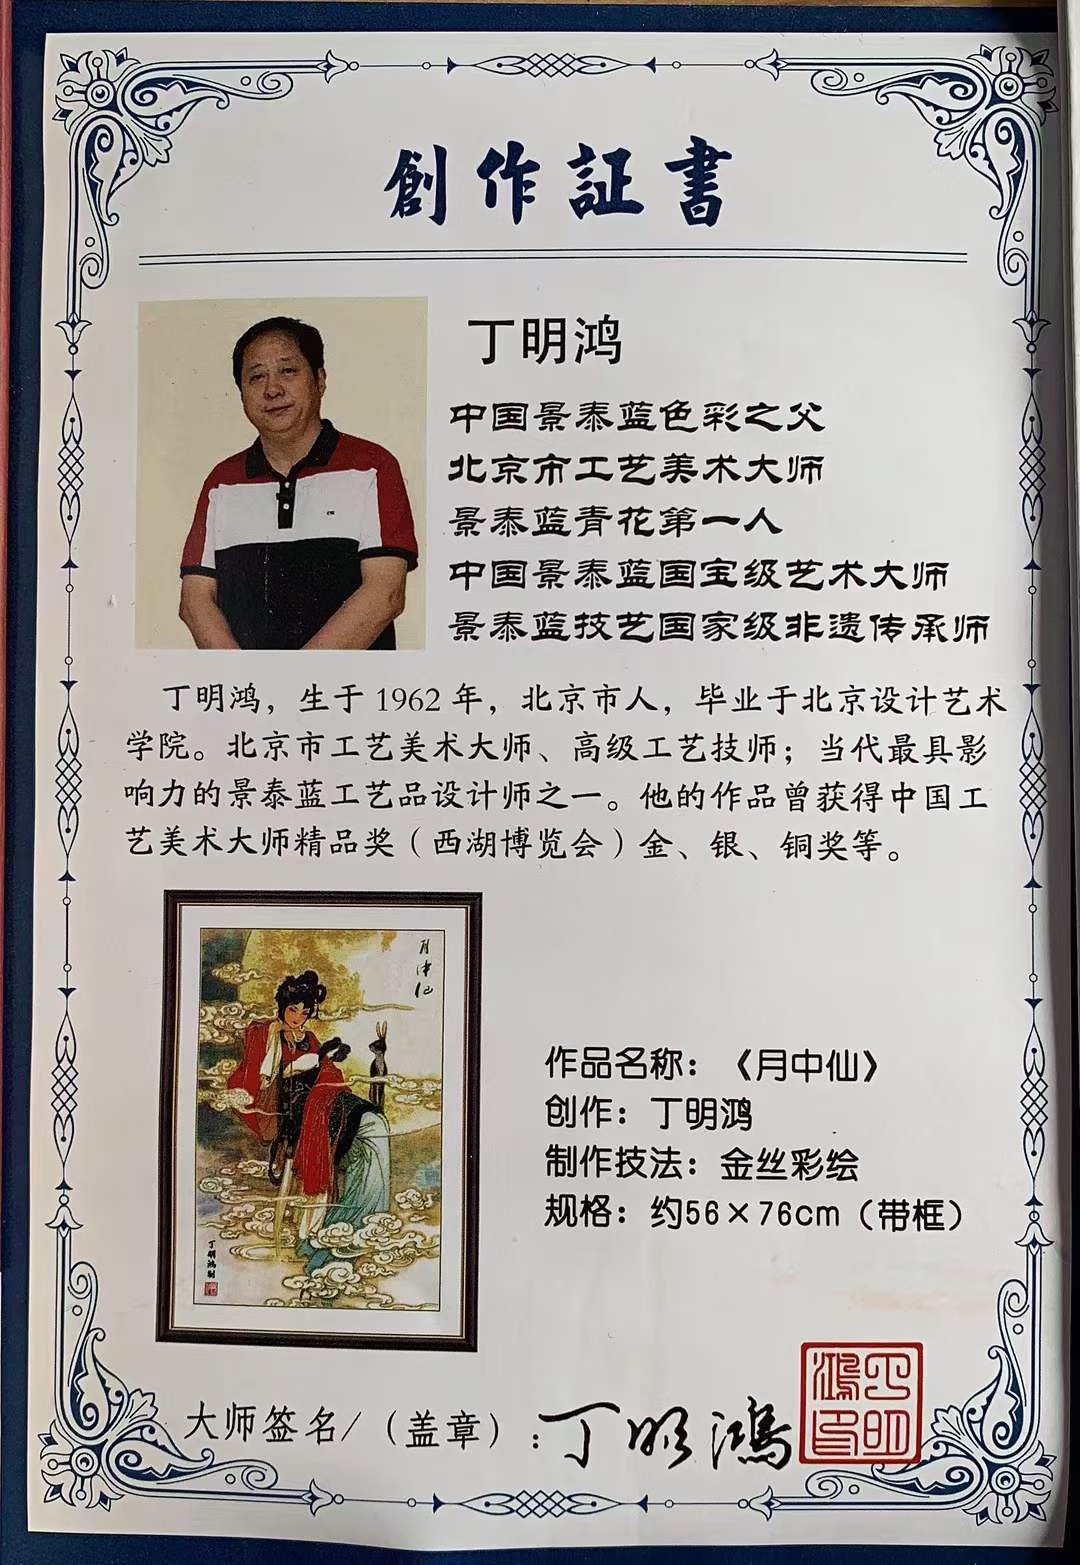 創作証書
丁明鸿
中国景泰蓝色彩之父
北京市工艺美术大师
景泰蓝青花第一人
中国景泰蓝国宝级艺术大师
景泰蓝技艺国家级非遗传承师
丁明鸿，生于1962年，北京市人，毕业于北京设计艺术
学院。北京市工艺美术大师、高级工艺技师；当代最具影
响力的景泰蓝工艺品设计师之一。他的作品曾获得中国工
艺美术大师精品奖（西湖博览会）金、银、铜奖等。
月中仙
丁明鸿制
作品名称：《月中仙》
创作：丁明鸿
制作技法：金丝彩绘
规格：约56×76cm（带框）
大师签名/（盖章）：丁明鴻
丁明鴻印